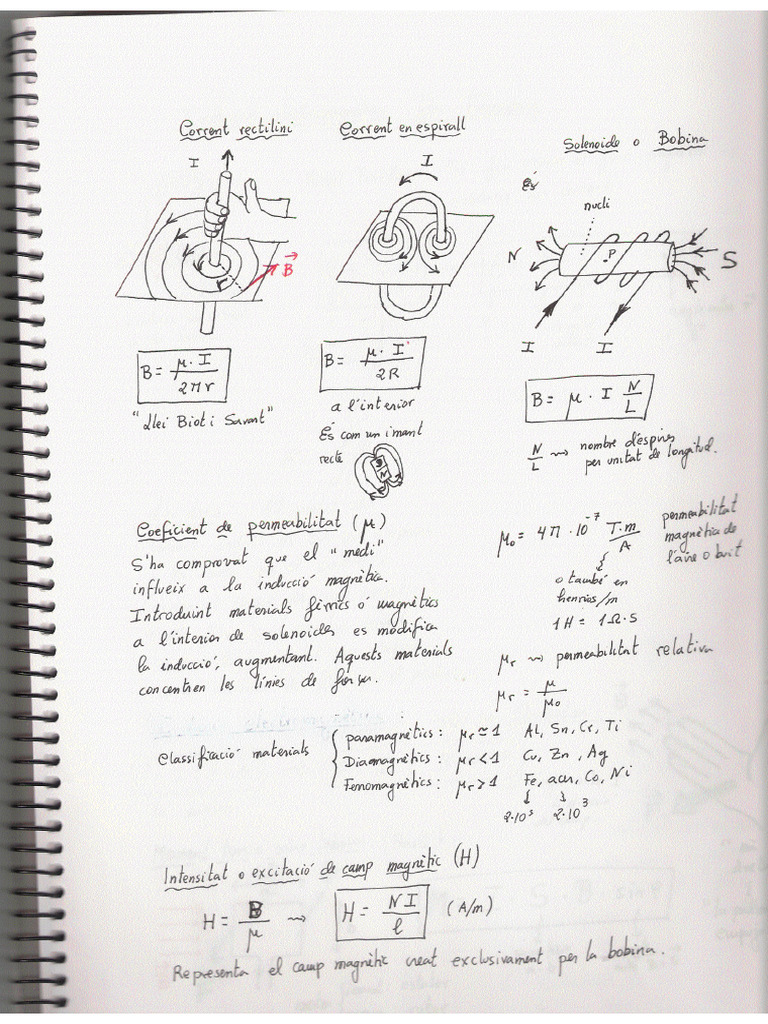 Corrent rectilini
I
B
r
B = μ · I / 2πr
"Llei Biot i Savart"
Corrent en espirall
I
B = μ · I / 2R
a l'interior
És com un imant
recte
S
N
Solenoide o Bobina
És
nucli
N
P
S
I
I
B = μ · I N/L
N/L ⇝ nombre d'espires
per unitat de longitud.
Coeficient de permeabilitat (μ)
S'ha comprovat que el "medi"
influeix a la inducció magnètica.
Introduint materials fèrrics ó magnètics
a l'interior de solenoides es modifica
la inducció, augmentant. Aquests materials
concentren les línies de força.
μo = 4π · 10⁻⁷ T·m/A
permeabilitat
magnètica de
l'aire o buit
o també en
henrios/m
1 H = 1 Ω·s
μr ⇝ permeabilitat relativa
μr = μ/μo
Classificació materials
paramagnètics: μr ≃ 1 Al, Sn, Cr, Ti
Diamagnètics: μr < 1 Cu, Zn, Ag
Ferromagnètics: μr > 1 Fe, acer, Co, Ni
2·10³ 2·10³
Intensitat o excitació de camp magnètic (H)
H = B/μ ⇝ H = N I / l (A/m)
Representa el camp magnètic creat exclusivament per la bobina.